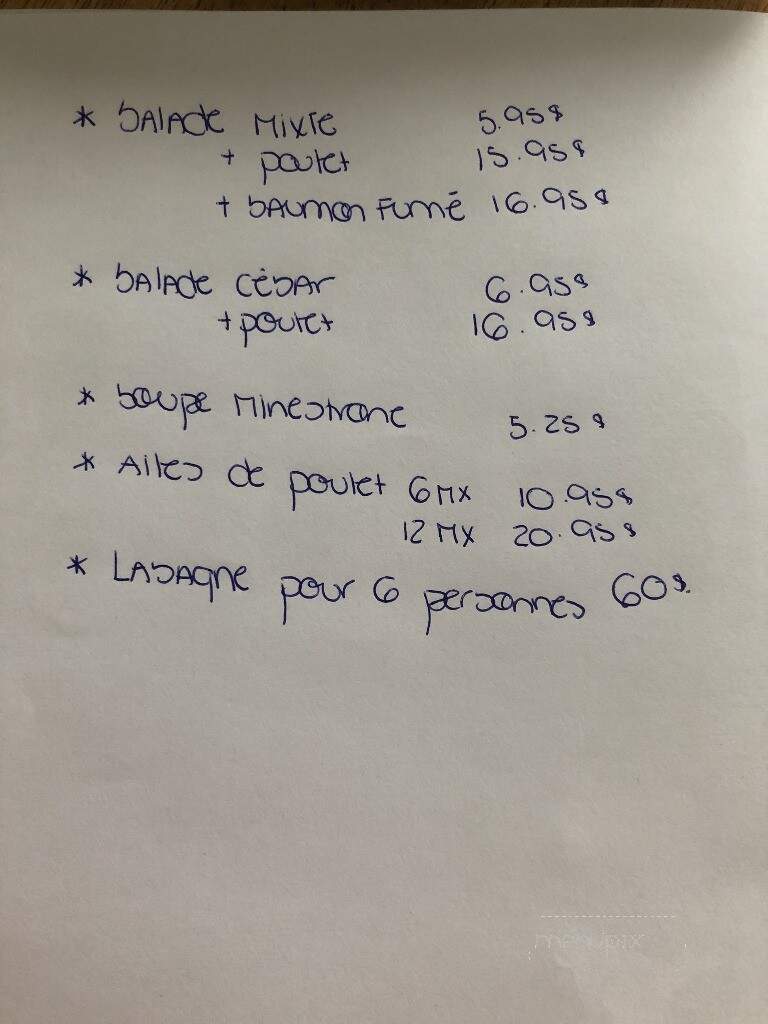 * Salade Mixte 5.95$
+ poulet 15.95$
+ Saumon Fumé 16.95$
* Salade César 6.95$
+ poulet 16.95$
* Soupe Minestrone 5.25$
* Ailes de poulet 6 MX 10.95$
12 MX 20.95$
* Lasagne pour 6 personnes 60$.
menupix